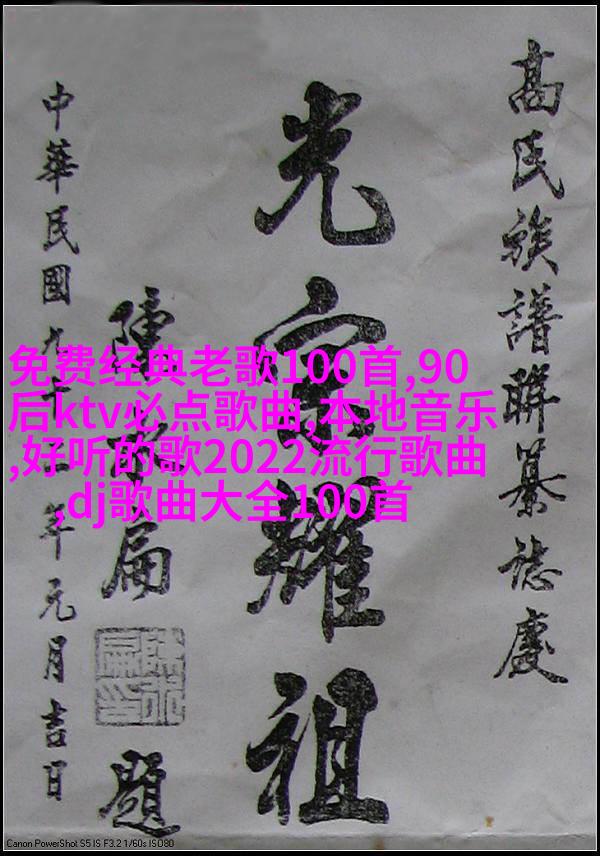 高氏族譜聯纂誌慶
光宗耀祖
陳水扁
題
中華民國九十年元月吉日
免费经典老歌100首,90
后ktv必点歌曲,本地音乐
,好听的歌2022流行歌曲
,dj歌曲大全100首
Canon PowerShot S5 IS F3.2 1/60s ISO80